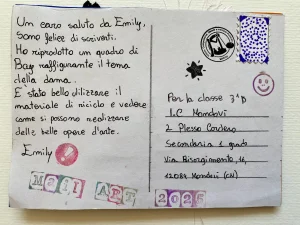 Un caro saluto da Emily,
sono felice di scriverti.
Ho riprodotto un quadro di
Bay raffigurante il tema
della dama.
E' stato bello utilizzare il
materiale di riciclo e vedere
come si possono realizzare
delle belle opere d'arte.
Emily
MAIL ART
2025
Per la classe 3°D
I.C Mondovì
2 Plesso Cordero
Secondaria 1 grado
Via Risorgimento, 14,
12084 Mondovì (CN)